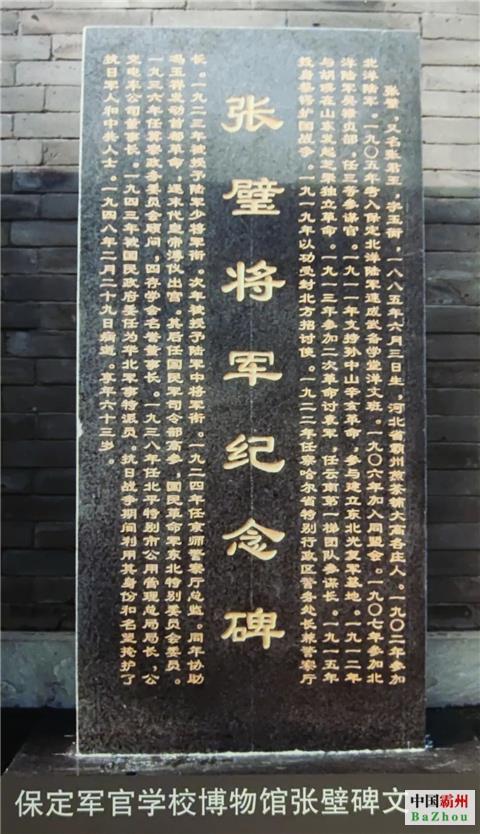 张璧，又名张英玉，字玉衡，一八八五年六月三日生，河北省霸州煎茶铺大高各庄人，一九〇二年参加
北洋陆军。一九〇五年考入保定北洋陆军速成武备学堂洋文班。一九〇六年加入同盟会。一九〇七年参加北
洋陆军吴禄贞部，任三等参谋官。一九一一年支持孙中山辛亥革命，参与建立东北光复军基地。一九一二年
与胡瑛在山东发起立案独立革命。一九一三年参加二次革命讨袁军，任云南第一梯团队参谋长。一九一五年
投身蔡锷护国战争。一九一九年以功受封北方招讨使。一九二二年任察哈尔省特别行政区警务处长兼警察厅
张璧将军纪念碑
长。一九二二年被授予陆军少将军衔。次年被授予陆军中将军衔。一九二四年任京师警察厅总监。同年协助
冯玉祥发动首都革命，逐末代皇帝溥仪出宫。其后任国民军司令部高参，国民革命军东北特别委员会委员。
一九三六年任冀察政务委员会顾问，四存学会名誉董事长。一九三八年任北平特别市公用管理总局局长，公
交电车公司董事长。一九四三年被国民政府委任为华北军事特派员。抗日战争期间利用其身份和名望掩护了
抗日军人和爱国人士。一九四八年二月二十九日病逝。享年六十三岁。
保定军官学校博物馆张璧碑文
中国霸州
BaZhou